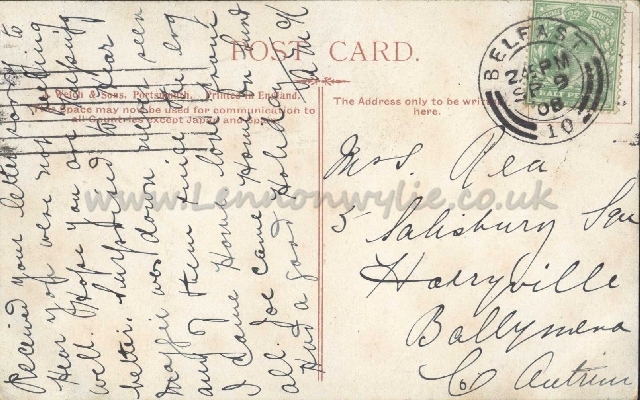 POST CARD.
Welch & Sons. Portsmouth. Printed in England.
This space may now be used for communication to
all Countries except Japan and Spain
The Address only to be written
here.
BELFAST
PM
SP 9
08
10
HALFPENNY
Received your letter sorry to
hear you were not feeling
well. Hope you are feeling
better. Surprised to hear
Maggie was down never seen
any of them since
I came Home love to
all. Joe came Home
Had a good Holiday
Mrs. Rea
5 Salisbury
Harryville
Ballymena
Co Antrim
www.Lennonwylie.co.uk